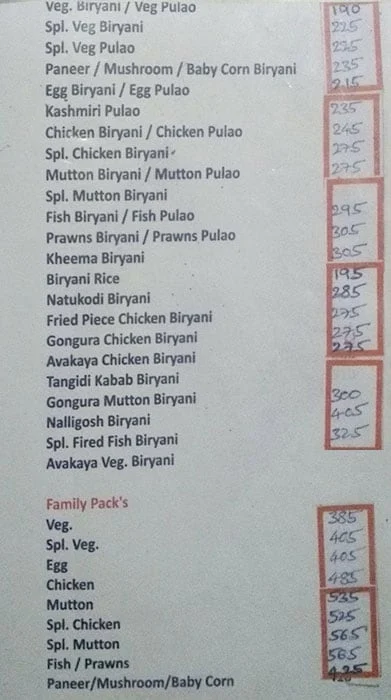 Veg. Biryani / Veg Pulao 190
Spl. Veg Biryani 225
Spl. Veg Pulao 225
Paneer / Mushroom / Baby Corn Biryani 235
Egg Biryani / Egg Pulao 215
Kashmiri Pulao 235
Chicken Biryani / Chicken Pulao 245
Spl. Chicken Biryani 275
Mutton Biryani / Mutton Pulao 275
Spl. Mutton Biryani
Fish Biryani / Fish Pulao 295
Prawns Biryani / Prawns Pulao 305
Kheema Biryani 305
Biryani Rice 195
Natukodi Biryani 285
Fried Piece Chicken Biryani 275
Gongura Chicken Biryani 275
Avakaya Chicken Biryani 275
Tangidi Kabab Biryani
Gongura Mutton Biryani 300
Nalligosh Biryani 405
Spl. Fired Fish Biryani 325
Avakaya Veg. Biryani
Family Pack's
Veg. 385
Spl. Veg. 405
Egg 405
Chicken 485
Mutton 535
Spl. Chicken 525
Spl. Mutton 565
Fish / Prawns 565
Paneer/Mushroom/Baby Corn 425